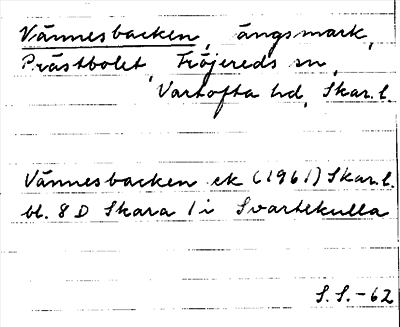 Vännesbacken, ängsmark,
Prästbolet, Fröjereds sn,
Vartofta hd, Skar. l.
Vännesbacken ek (1961) Skar. l.
bl. 8 D Skara 1 i Svartekulla
S. S. -62